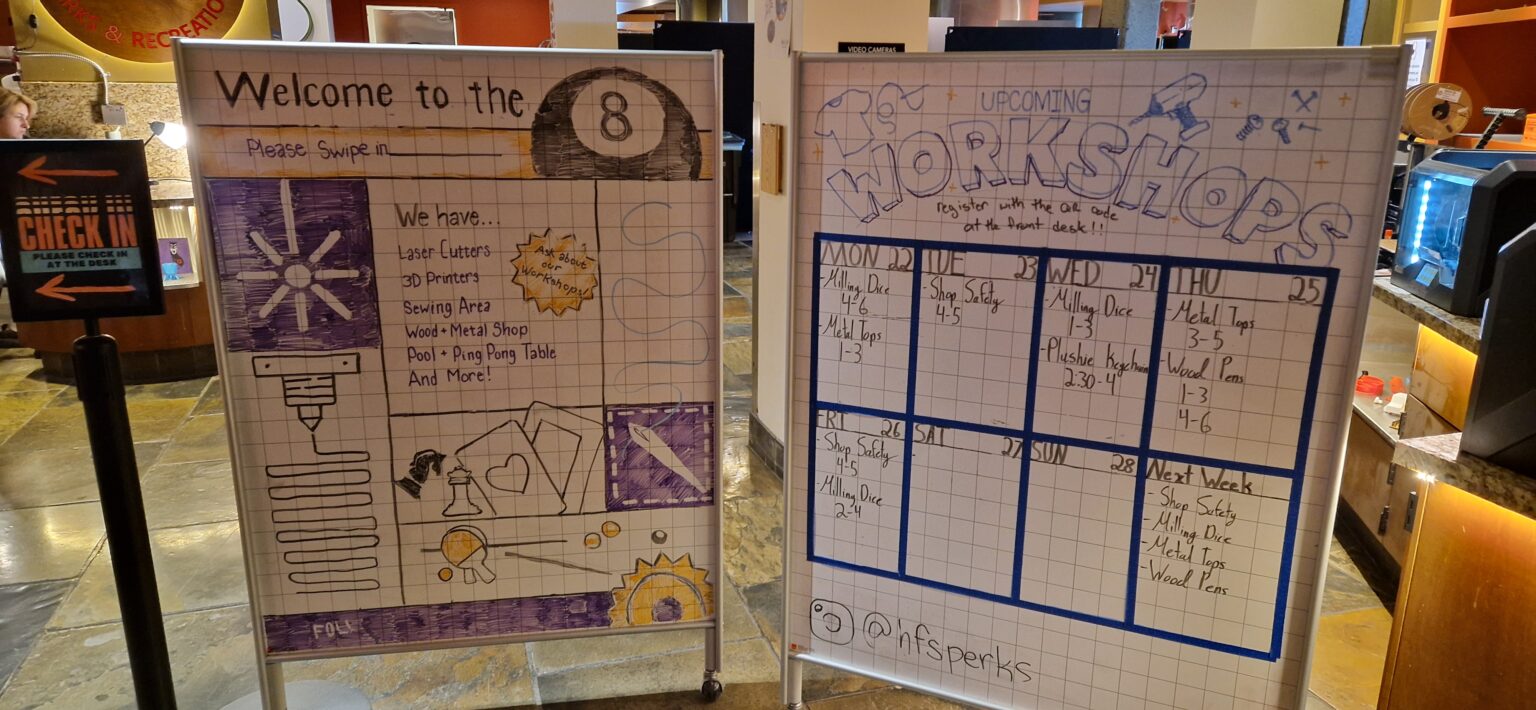 RKS & RECREATIO
VIDEO CAMERAS
CHECK IN
PLEASE CHECK IN
AT THE DESK
Welcome to the 8
Please Swipe in
We have...
Laser Cutters
3D Printers
Sewing Area
Wood + Metal Shop
Pool + Ping Pong Table
And More!
Ask about
our
Workshops!
FOLL
UPCOMING
WORKSHOPS
register with the QR code
at the front desk!!
MON 22
- Milling Dice
4-6
- Metal Tops
1-3
TUE 23
- Shop Safety
4-5
WED 24
- Milling Dice
1-3
- Plushie Keychain
2:30-4
THU 25
- Metal Tops
3-5
- Wood Pens
1-3
4-6
FRI 26
- Shop Safety
4-5
- Milling Dice
2-4
SAT 27
SUN 28
Next Week
- Shop Safety
- Milling Dice
- Metal Tops
- Wood Pens
@hfsperks